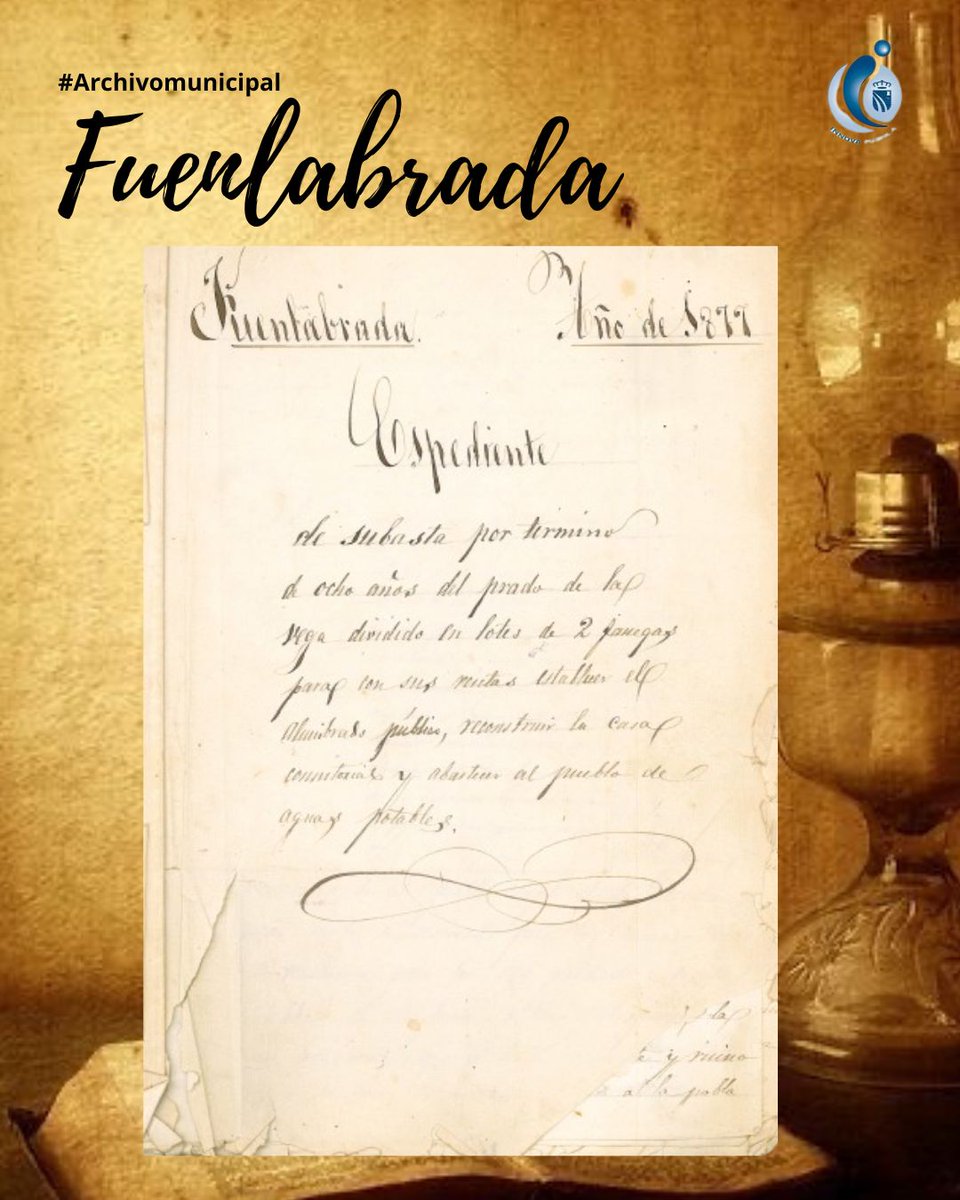 #Archivomunicipal
Fuenlabrada
Fuenlabrada. Año de 1877
Espediente
de subasta por termino
de ocho años del prado de la
vega dividido en lotes de 2 fanegas
para con sus rentas establecer el
alumbrado público, reconstruir la casa
consistorial y abastecer al pueblo de
aguas potables.
y la
y ruino
a la pobla